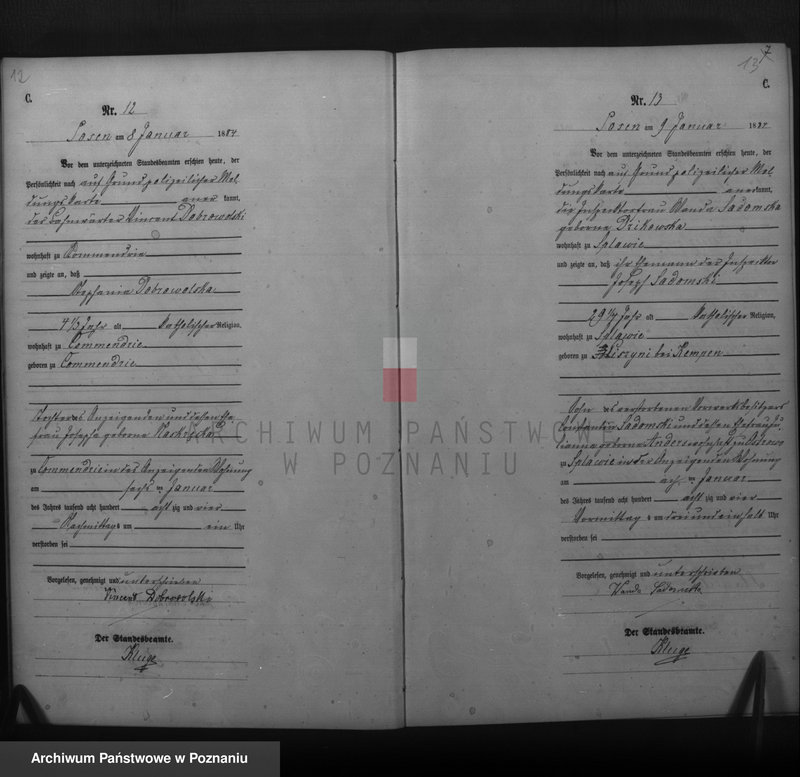 12
C.
Nr. 12
Posen am 8 Januar 1884
Vor dem unterzeichneten Standesbeamten erschien heute, der
Persönlichkeit nach auf Grund polizeilicher Mel-
dungskarte aner kannt,
der Bahnwärter Vincent Dobrowolski
wohnhaft zu Commendrie
und zeigte an, daß
Stephania Dobrowolska
4 1/3 Jahr alt katholischer Religion,
wohnhaft zu Commendrie
geboren zu Commendrie
Tochter des Anzeigenden und dessen Ehe-
frau Josepha geborne
zu Commendrie in des Anzeigenden Wohnung
am sechs ten Januar
des Jahres tausend acht hundert acht zig und vier
Nachmittags um ein Uhr
verstorben sei
Vorgelesen, genehmigt und unterschrieben
Vincent Dobrowolski
Der Standesbeamte.
Kluge
7
13
C.
Nr. 13
Posen am 9 Januar 1884
Vor dem unterzeichneten Standesbeamten erschien heute, der
Persönlichkeit nach auf Grund polizeilicher Mel-
dungskarte anerkannt,
die Inspektorfrau Wanda Sadomska
geborne
wohnhaft zu Splawie
und zeigte an, daß ihr Ehemann der Inspektor
Joseph Sadomski
29 Jahr alt katholischer Religion,
wohnhaft zu Splawie
geboren zu bei Kempen
Sohn des verstorbenen Vorwerksbesitzers
Constantin Sadomski und dessen Ehefrau Ju-
lianna geborne zu
zu Splawie in der Anzeigenden Wohnung
am ach ten Januar
des Jahres tausend acht hundert acht zig und vier
Vormittag s um drei und ein halb Uhr
verstorben sei
Vorgelesen, genehmigt und unterschrieben
Wanda Sadomska
Der Standesbeamte.
Kluge
ARCHIWUM PAŃSTWOWE
W POZNANIU
Archiwum Państwowe w Poznaniu